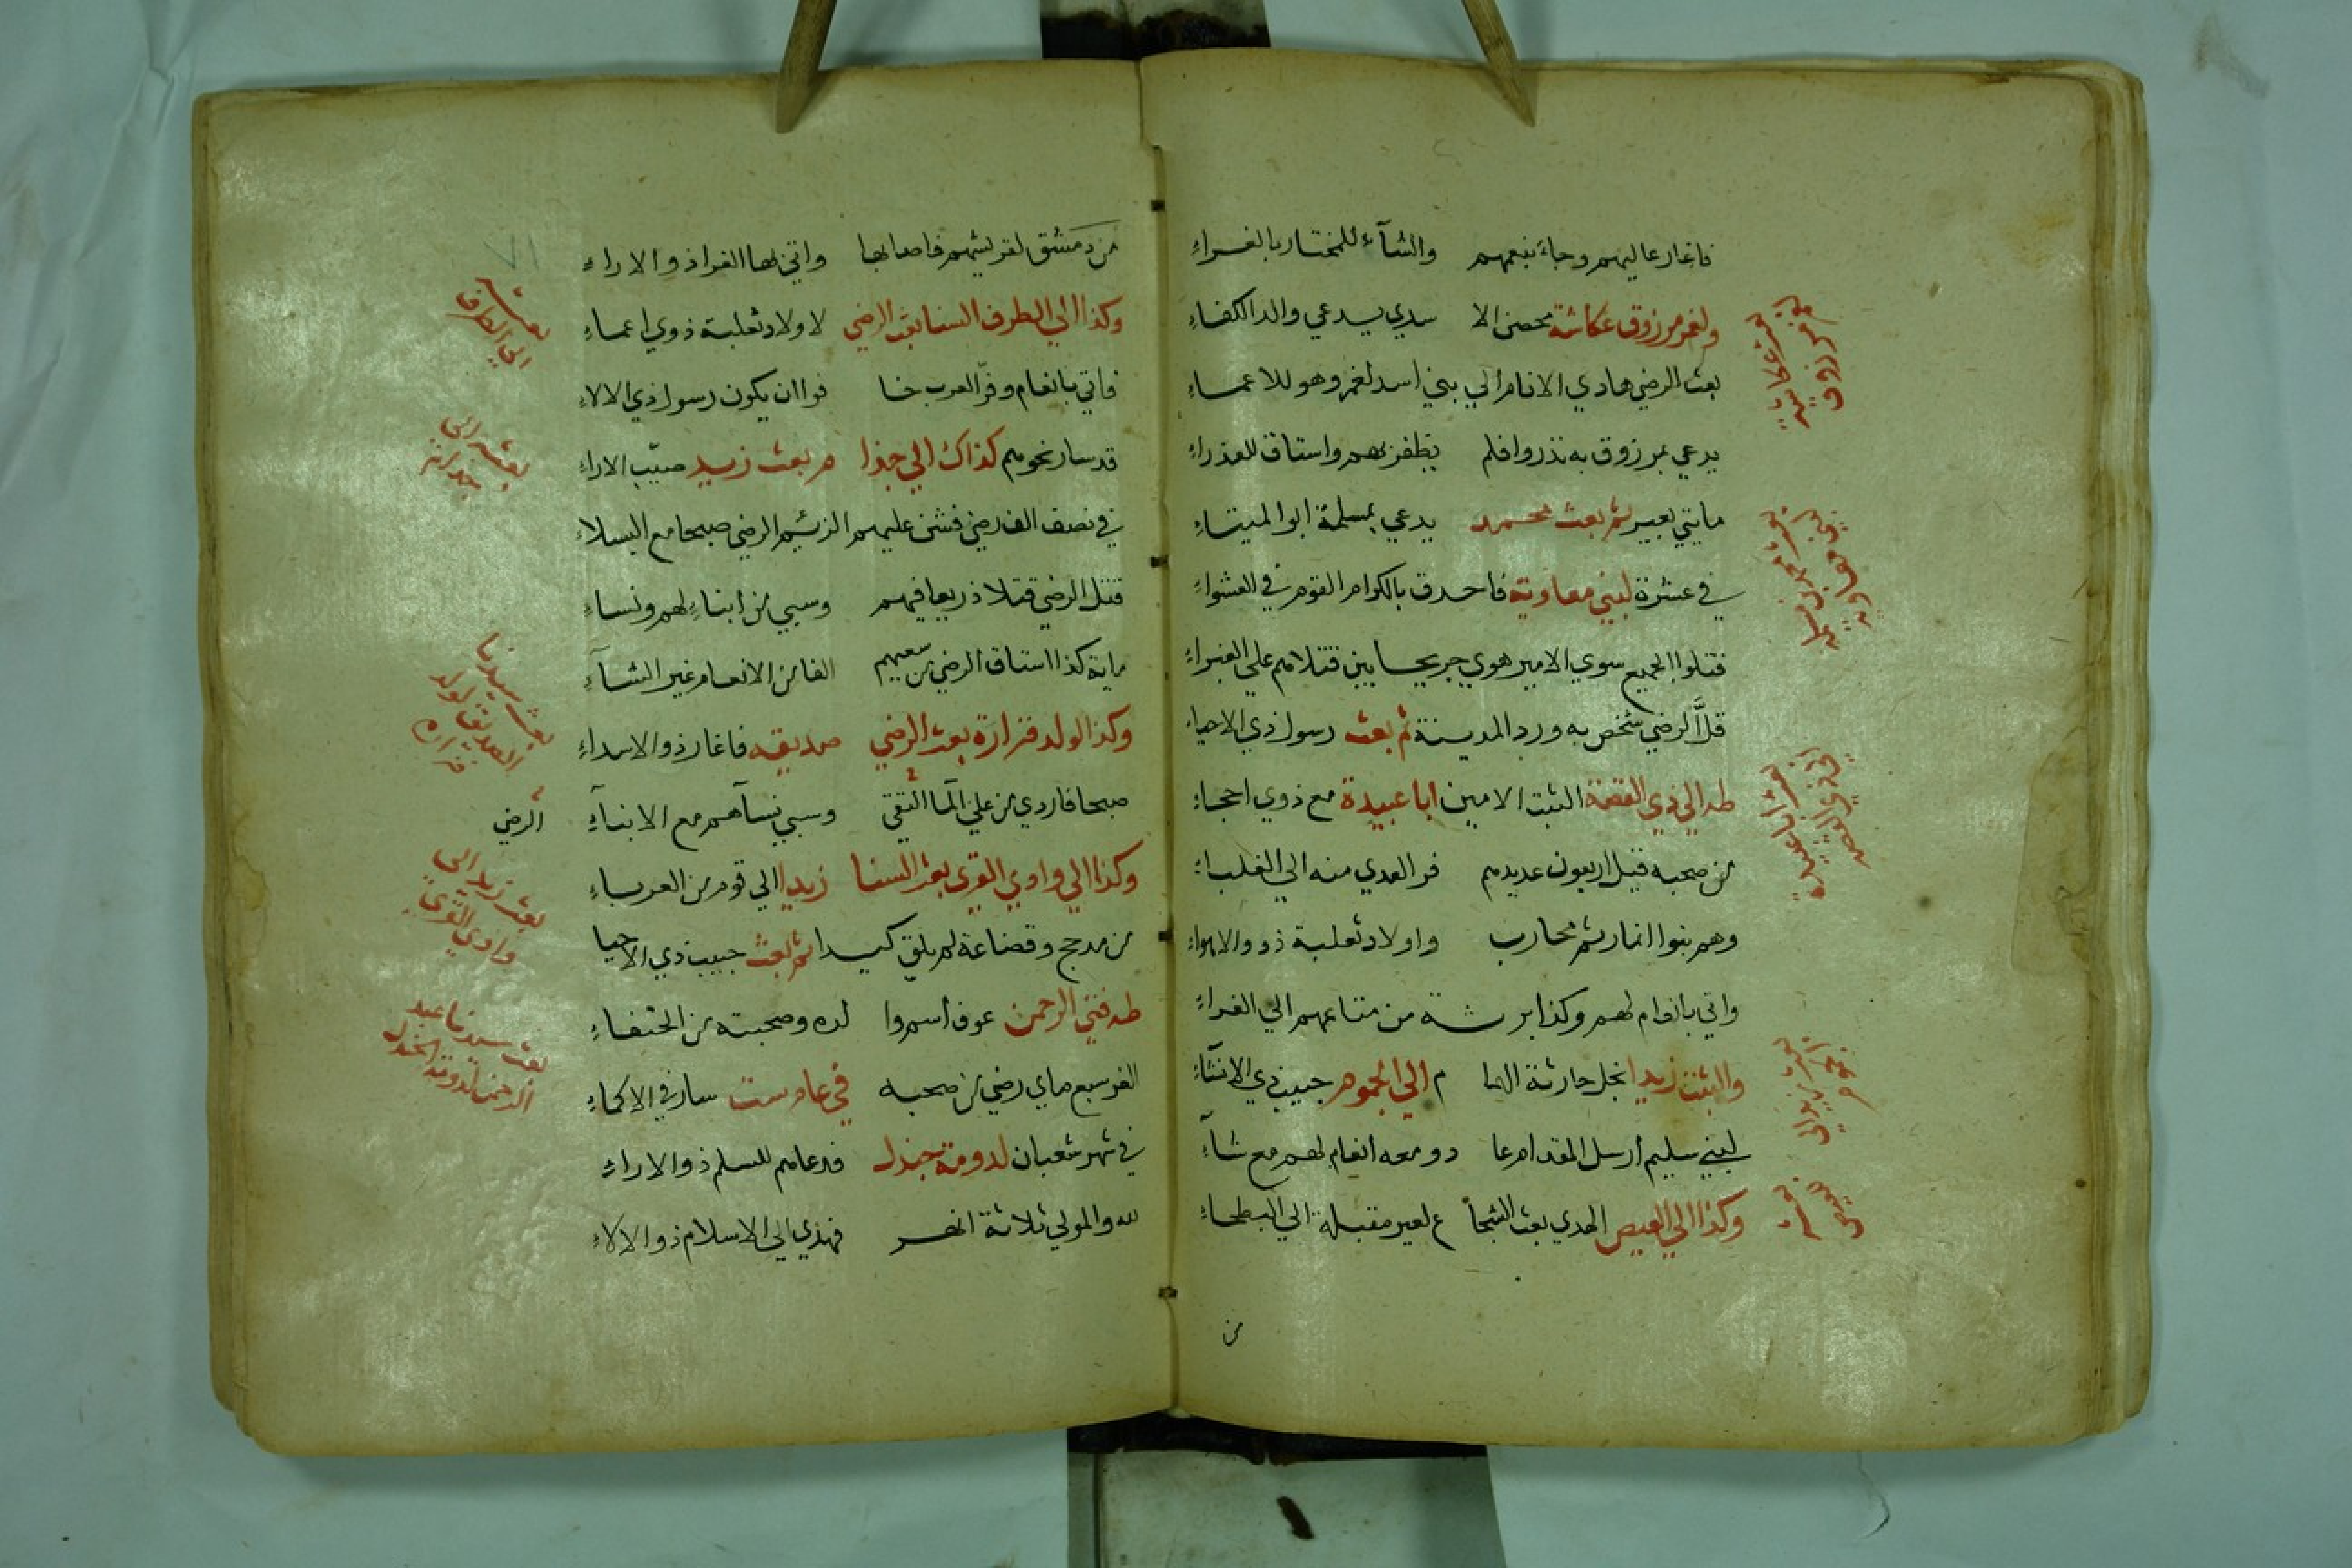 فاغار عاليهم وجاء بنعمهم والشآء للمختار بالغراء
ولغمر مرزوق عكاشة محصن الا سدي يدعي والد الكفاء
بعث الرضي هادي الانام الي بني اسد لغمر وهو للاعماء
يدعي بمرزوق به نذروا فلم يظفر بهم واستاق للعذراء
مايتي بعير ثم بعث محمد يدعي بمسلمة ابوا الميتاء
في عشرة لبني معاوية فاحدق بالكرام القوم في العشواء
فتلوا الجميع سوي الامير هوي جريحا بين قتلاهم علي الغبراء
قل الرضي شخص به ورد المدينة ثم بعث رسول ذي الاحياء
طه الي ذي القصة الثبت الامين ابا عبيدة مع ذوي احجاء
من صحبه قيل اربعون عديدهم فر العدي منه الي الغلباء
وهم بنوا انمار ثم محارب واولاد ثعلبة ذوو الاهواء
واتي بانعام لهم وكذا برشة من متاعهم الي الغراء
والبثت زيدا نجل حارثة الهما م الي الجموم حبيب ذي الانشاء
لبني سليم أرسل المقدام عا د ومعه انعام لهم مع شآء
وكذا الي العيص الهدي بعث الشجا ع لعير مقبلة الي البطحاء
من
بعث عكاشة
لغمر مرزوق
بعث محمد بن مسلمة
لبني معاوية
بعث ابا عبيدة
الي ذي القصة
بعث زيد الي
الجموم
بعثه
للعيص
٧١
من دمشق لقريشهم فاصابها واتي لها الغراذ والاراء
وكذا الي الطرف السنا بعث الرضي لاولاد ثعلبة ذوي اعماء
فاتي بانعام وفر العرب خا فوا ان يكون رسول ذي الالاء
قد سار نحوهم كذاك الي جذا م بعث زيد صيب الاراء
في نصف الف رضي فشن عليهم الزئيم الرضي صبحا مع البسلاء
قتل الرضي قتلا ذريعا فيهم وسبي من ابناء لهم ونساء
ماية كذا استاق الرضي من نعمهم الفا من الانعام غير الشآء
وكذا لولد فزارة بعث الرضي صديقه فاغار ذو الاسداء
صبحا فاردي من علي الما التقي وسبي نسآهم مع الابنآء
وكذا الي وادي القري بعث السنا زيدا الي قوم من العرباء
من مدحج وقضاعة لم يلق كيدا ثم بعث حبيب ذي الاحيا
طه فتي الرحمن عوف أسموا لده وصحبته من الحنفاء
الفر سبع ماي رضي من صحبه في عام ست سار في الاكماء
في شهر شعبان لدومة جندل فدعاهم للسلم ذو الاراء
لله والمولي ثلاثة انهر فهذي الي الاسلام ذو الالاء
بعثه
الي الطرف
بعثه الي
جذام
بعث سيدنا
الصديق لولد
فزارة
الرضي
بعث زيد الي
وادي القري
بعث سيدنا عبد
الرحمن لدومة الجندل